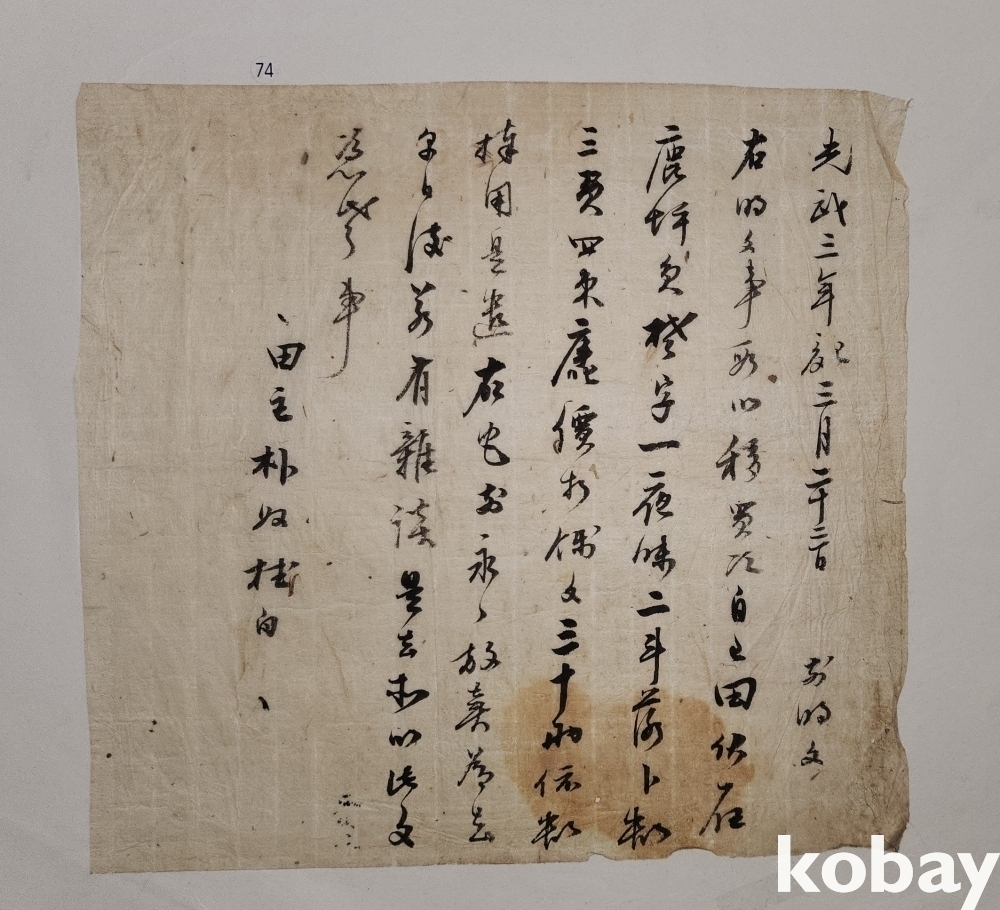 74
光武三年 三月二十三日 前明文
右明文事段以移買次自己田伏在
鹿坪員楚字一夜味二斗落卜數
三負四束庫價折價文三十兩依數
捧用是遣右宅前永永放賣爲去
乎日後若有雜談是去等以此文
憑考事
田主朴奴 白
kobay